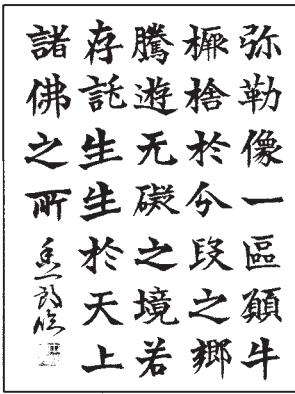 弥勒像一區願牛
橛捨於分段之鄉
騰遊无礙之境若
存託生生於天上
諸佛之所
臨